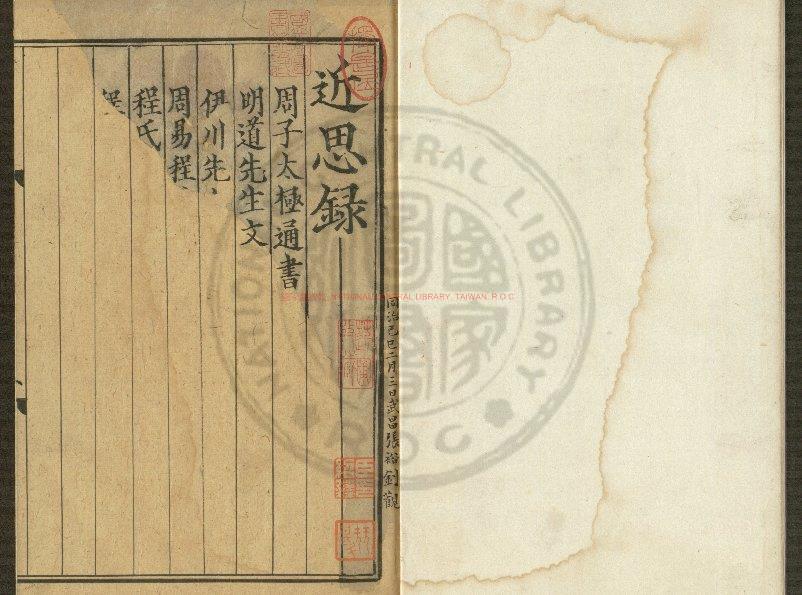 同治己巳二月三日武昌張裕釗觀
近思録
周子太極通書
明道先生文
伊川先
周易程
程氏
NATIONAL CENTRAL LIBRARY, TAIWAN, R.O.C
NATIONAL CENTRAL LIBRARY
ROC